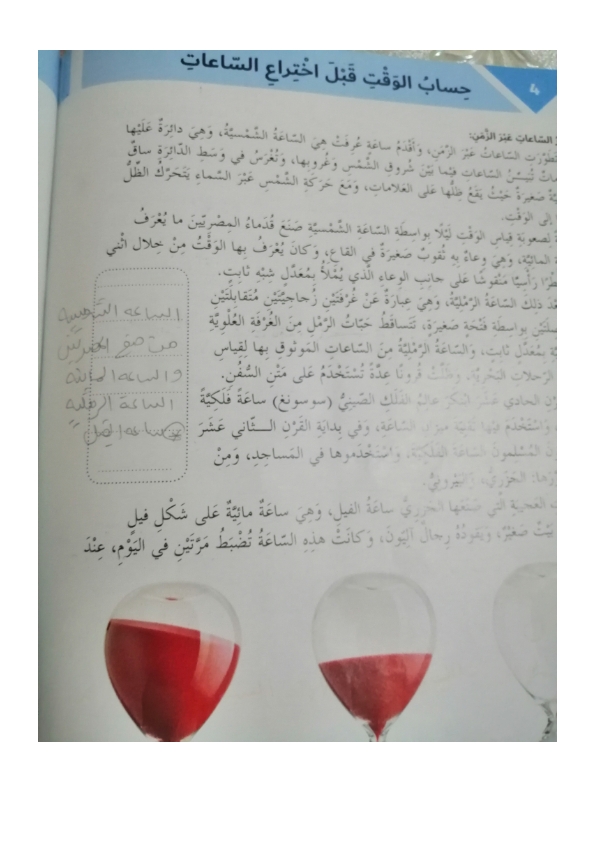 ٤
حِسابُ الوَقْتِ قَبْلَ اخْتِراعِ السّاعاتِ
السّاعاتِ عَبْرَ الزَّمَنِ:
تَطَوَّرَتِ السّاعاتُ عَبْرَ الزَّمَنِ، وَأَقْدَمُ ساعَةٍ عُرِفَتْ هِيَ السّاعَةُ الشَّمْسِيَّةُ، وَهِيَ دائِرَةٌ عَلَيْها
السّاعاتِ فيما بَيْنَ شُروقِ الشَّمْسِ وَغُروبِها، وَتُغْرَسُ في وَسَطِ الدّائِرَةِ ساقٌ
صَغيرَةٌ حَيْثُ يَقَعُ ظِلُّها عَلى العَلاماتِ، وَمَعَ حَرَكَةِ الشَّمْسِ عَبْرَ السَّماءِ يَتَحَرَّكُ الظِّلُّ
إِلى الوَقْتِ.
لِصُعوبَةِ قِياسِ الوَقْتِ لَيْلًا بِواسِطَةِ السّاعَةِ الشَّمْسِيَّةِ صَنَعَ قُدَماءُ المِصْرِيّينَ ما يُعْرَفُ
المائِيَّةِ، وَهِيَ وِعاءٌ بِهِ ثُقوبٌ صَغيرَةٌ في القاعِ، وَكانَ يُعْرَفُ بِها الوَقْتُ مِنْ خِلالِ اثْنَي
رَأْسِيًّا مَنْقوشًا عَلى جانِبِ الوِعاءِ الَّذي يُمْلَأُ بِمُعَدَّلٍ شِبْهِ ثابِتٍ.
ذلِكَ السّاعَةُ الرَّمْلِيَّةُ، وَهِيَ عِبارَةٌ عَنْ غُرْفَتَيْنِ زُجاجِيَّتَيْنِ مُتَقابِلَتَيْنِ
بِواسِطَةِ فَتْحَةٍ صَغيرَةٍ، تَتَساقَطُ حَبّاتُ الرَّمْلِ مِنَ الغُرْفَةِ العُلْوِيَّةِ
بِمُعَدَّلٍ ثابِتٍ، وَالسّاعَةُ الرَّمْلِيَّةُ مِنَ السّاعاتِ المَوْثوقِ بِها لِقِياسِ
الرَّحَلاتِ البَحْرِيَّةِ. وَظَلَّتْ قُرونًا عِدَّةً تُسْتَخْدَمُ عَلى مَتْنِ السُّفُنِ.
الحادي عَشَرَ ابْتَكَرَ عالِمُ الفَلَكِ الصّينِيُّ (سوسونغ) ساعَةً فَلَكِيَّةً
وَاسْتَخْدَمَ فيها تِقْنِيَّةَ ميزانِ السّاعَةِ، وَفي بِدايَةِ القَرْنِ الـثّاني عَشَرَ
المُسْلِمونَ السّاعَةَ الفَلَكِيَّةَ، وَاسْتَخْدَموها في المَساجِدِ، وَمِنْ
الجَزَرِيُّ، وَالبَيْرونِيُّ.
الَّتي صَنَعَها الجَزَرِيُّ ساعَةُ الفيلِ، وَهِيَ ساعَةٌ مائِيَّةٌ عَلى شَكْلِ فيلٍ
بَيْتٌ صَغيرٌ، وَيَقودُهُ رِجالٌ آلِيّونَ، وَكانَتْ هذِهِ السّاعَةُ تُضْبَطُ مَرَّتَيْنِ في اليَوْمِ، عِنْدَ
الساعه الشمسيه
من صنع المصريين
والساعه المائيه
الساعة الرمليه
ساعه الفيل